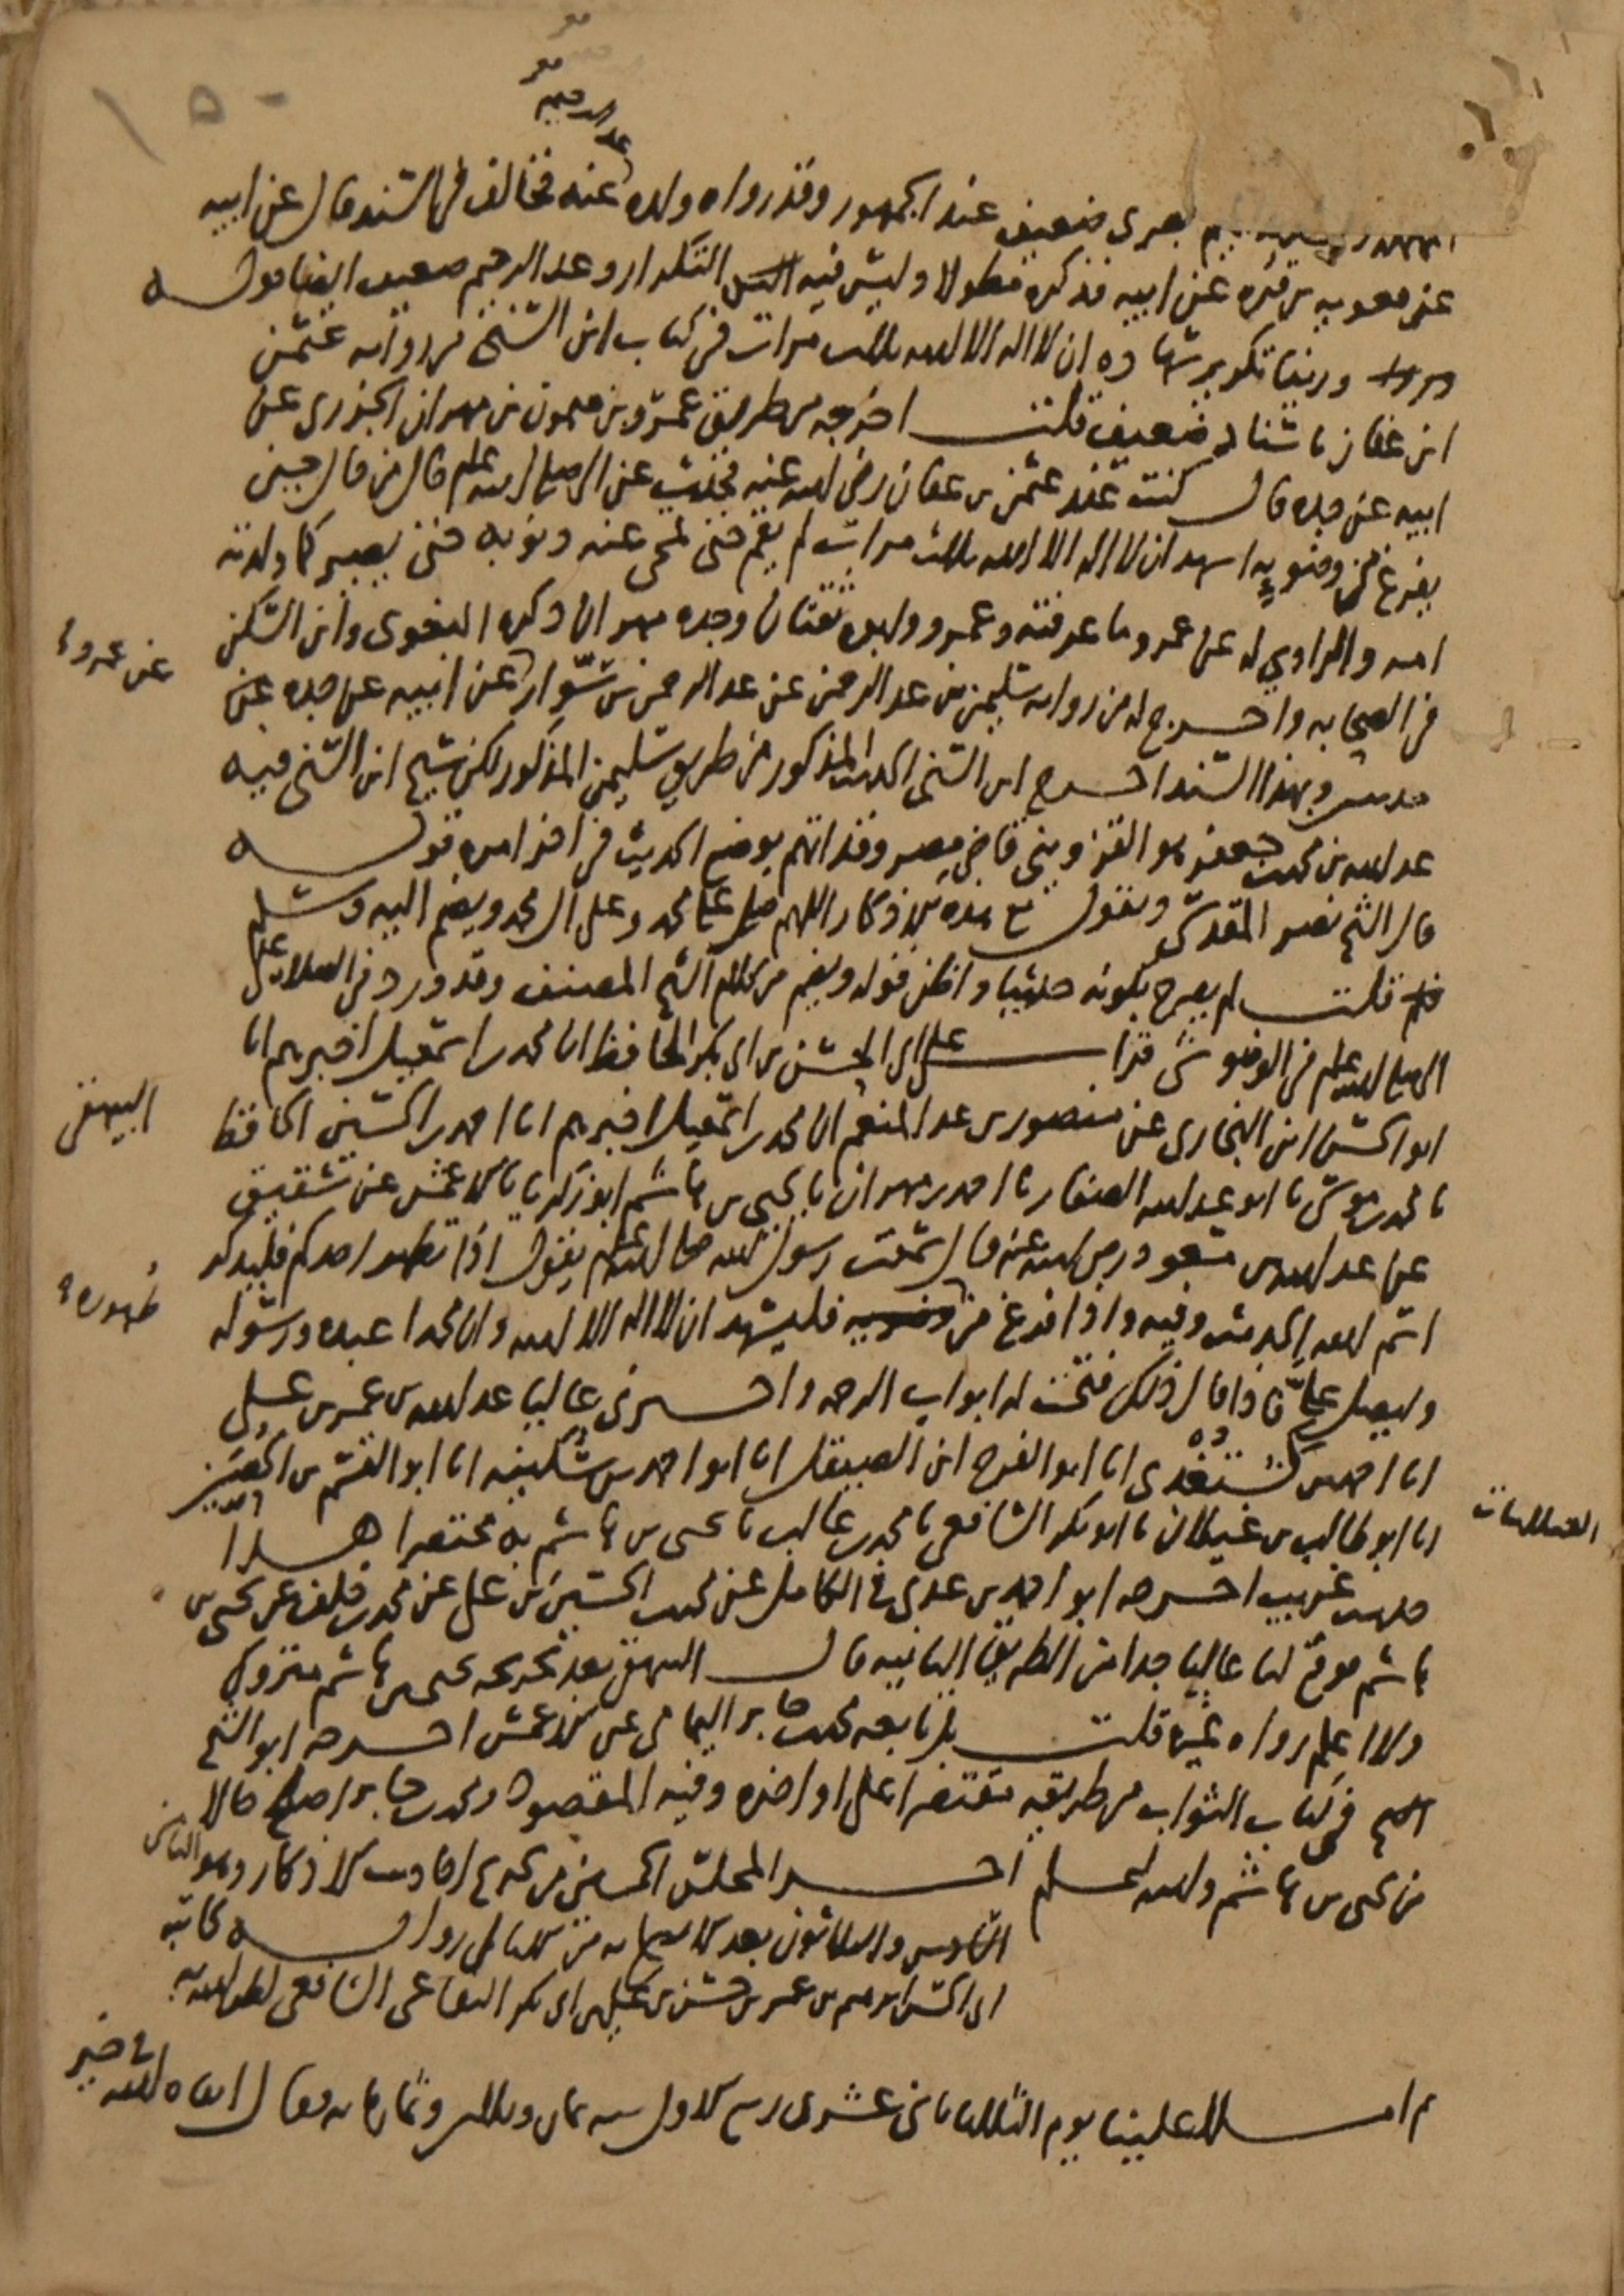 ١٥٠
عبد الرحيم
بصري ضعيف عند الجمهور وقد رواه ولده عنه فخالف في السند قال عن ابيه
عن معويه بن قره عن ابيه فذكره مطولا وليس فيه التكرار وعبد الرحيم ضعيف ايضا قوله
وروينا تكرير شهاده ان لا اله الا الله ثلاث مرات في كتاب ابن السني من روايه عثمن
ابن عفان باسناد ضعيف قلت اخرجه من طريق عمرو بن ميمون بن مهران الجزري عن
ابيه عن جده قال كنت عند عثمن بن عفان رضي الله عنه فحدث عن النبي صلى الله عليه وسلم قال من قال حين
يفرغ من وضويه اشهد ان لا اله الا الله ثلاث مرات لم يقم حتى تمحى عنه ذنوبه حتى يصير كما ولدته
امه والراوي له عن عمرو ما عرفته وعمرو وابوه ثقتان وجده مهران ذكره البغوي وابن السكن
عن عمرو
في الصحابه واخرج له من روايه سليمن بن عبد الرحمن عن عبد الرحمن بن سوار عن ابيه عن جده عن
حديث وبهذا السند اخرج ابن السني الحديث المذكور من طريق سليمن المذكور لكن شيخ ابن السني فيه
عبد الله بن محمد بن جعفر هو القزويني قاضي مصر وقد اتهم بوضع الحديث في اخر امره قوله
قال الشيخ نصر المقدسي ويقول مع هذه الاذكار اللهم صل على محمد وعلى ال محمد ويضم اليه وسلم
قلت لم يصرح بكونه حديثا واظن قوله ويضم من كلام الشيخ المصنف وقد ورد في الصلاه على
النبي صلى الله عليه وسلم في الوضو شي قرات على ابي الحسن بن ابي بكر الحافظ ان محمد بن اسمعيل اخبرهم انا
ابو الحسن ابن البخاري عن منصور بن عبد المنعم ان محمد بن اسمعيل اخبرهم انا احمد بن الحسين الحافظ
البيهقي
نا محمد بن موسى نا ابو عبد الله الصفار نا احمد بن مهران نا يحيى بن هاشم ابو زكريا نا الاعمش عن شقيق
عن عبد الله بن مسعود رضي الله عنه قال سمعت رسول الله صلى الله عليه وسلم يقول اذا تطهر احدكم فليذكر
اسم الله الحديث وفيه واذا فرغ من وضويه فليشهد ان لا اله الا الله وان محمدا عبده ورسوله
طهوره
وليصل علي فاذا قال ذلك فتحت له ابواب الرحمه واخبرني عاليا عبد الله بن عمر بن علي
انا احمد بن كشتغدي انا ابو الفرج ابن الصيقل انا ابو احمد بن سكينه انا ابو القسم بن الحصين
انا ابو طالب بن غيلان نا ابو بكر الشافعي نا محمد بن غالب نا يحيى بن هاشم به مختصرا هذا
الغيلانيات
حديث غريب اخرجه ابو احمد بن عدي في الكامل عن محمد بن الحسين بن علي عن محمد بن خلف عن يحيى بن
هاشم فوقع لنا عاليا جدا من الطريق الثانيه قال البيهقي بعد تخريجه يحيى بن هاشم متروك
ولا اعلم رواه غيره قلت بل تابعه محمد بن جابر اليمامي عن الاعمش اخرجه ابو الشيخ
في كتاب الثواب من طريقه مقتصرا على اواخره وفيه المقصود ومحمد بن جابر اصلح حالا
من يحيى بن هاشم والله اعلم اخر المجلس الخمسين من تخريج احاديث الاذكار وهو الثاني
السادس والثلاثون بعد الاربعمايه من الامالي روايه كاتبه
ابي الحسن ابراهيم بن عمر بن حسن بن علي بن ابي بكر البقاعي الشافعي لطف الله به
ثم املا علينا يوم الثلثا ثاني عشري ربيع الاول سنه ثمان وثلاثين وثمانمايه فقال ابقاه الله في خير